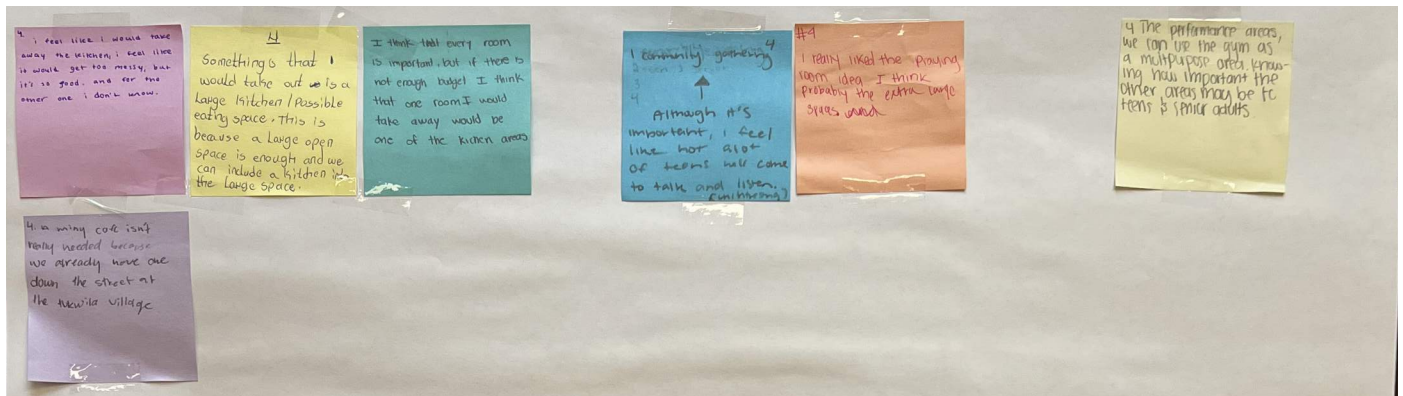 4. i feel like i would take
away the kitchen, i feel like
it would get too messy, but
it's so good. and for the
other one i don't know.
4
Something that I
would take out is a
Large kitchen/possible
eating space. This is
because a large open
space is enough and we
can include a kitchen in
the large space.
I think that every room
is important. but if there is
not enough budget I think
that one room I would
take away would be
one of the kichen areas
1 community gathering 4
2
3
4
Although it's
important, i feel
like not alot
of teens will come
to talk and listen.
#4
I really liked the
room idea I think
probably the extra large
4 The performance areas,
we can use the gym as
a multipurpose area. know-
ing how important the
other areas may be to
teens & senior adults
4. a miny cafe isn't
really needed because
we already have one
down the street at
the tukwila village